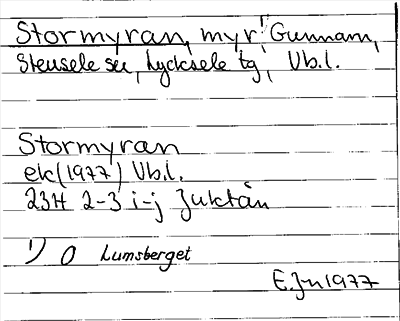 Stormyran, myr¹⁾ Gunnarn,
Stensele sn, Lycksele tg, Vb.l.
Stormyran
ek (1977) Vb.l.
23H 2-3 i-j Juktån
1) O Lumsberget
E.Jn 1977